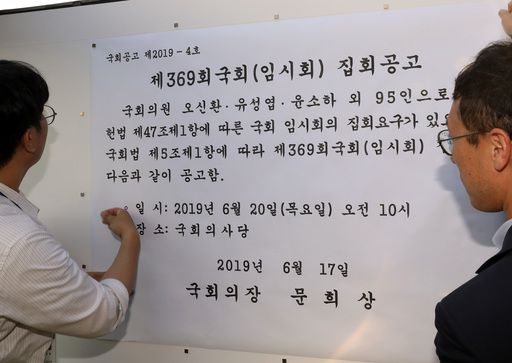 국회공고 제2019-4호
제369회국회(임시회) 집회공고
국회의원 오신환·유성엽·윤소하 외 95인으로
헌법 제47조제1항에 따른 국회 임시회의 집회요구가 있
국회법 제5조제1항에 따라 제369회국회(임시회)
다음과 같이 공고함.
일 시: 2019년 6월 20일(목요일) 오전 10시
장 소: 국회의사당
2019년 6월 17일
국회의장 문희상